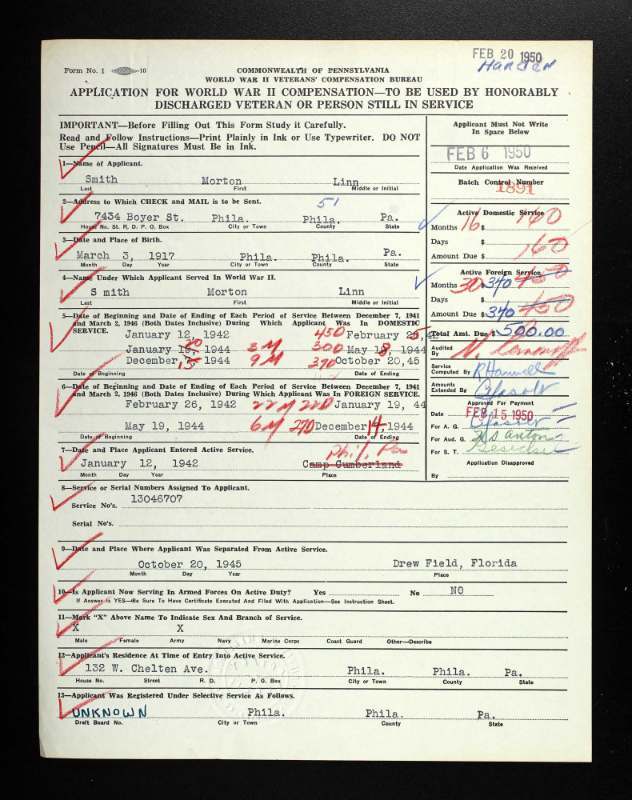 FEB 20 1950
Form No. 1 10
COMMONWEALTH OF PENNSYLVANIA
WORLD WAR II VETERANS' COMPENSATION BUREAU
APPLICATION FOR WORLD WAR II COMPENSATION—TO BE USED BY HONORABLY
DISCHARGED VETERAN OR PERSON STILL IN SERVICE
IMPORTANT—Before Filling Out This Form Study it Carefully.
Read and Follow Instructions—Print Plainly in Ink or Use Typewriter. DO NOT
Use Pencil—All Signatures Must Be in Ink.
Applicant Must Not Write
In Space Below
FEB 6 1950
Date Application Was Received
Batch Control Number
1891
1—Name of Applicant.
Smith Morton Linn
Last First Middle or Initial
2—Address to Which CHECK and MAIL is to be Sent. 51
7434 Boyer St. Phila. Phila. Pa.
House No. St. R. D. P. O. Box City or Town County State
3—Date and Place of Birth.
March 3, 1917 Phila. Phila. Pa.
Month Day Year City or Town County State
4—Name Under Which Applicant Served In World War II.
S mith Morton Linn
Last First Middle or Initial
Active Domestic Service
Months 16 $ 160
Days $
Amount Due $ 160
Active Foreign Service
Months 30 $ 340
Days $
Amount Due $ 340
Total Amt. Due $ 500.00
Audited
By
Service
Computed By
Amounts
Extended By
Approved For Payment
Date FEB 15 1950
For A. G.
For Aud. G.
For S. T.
Application Disapproved
By
5—Date of Beginning and Date of Ending of Each Period of Service Between December 7, 1941
and March 2, 1946 (Both Dates Inclusive) During Which Applicant Was In DOMESTIC
SERVICE.
January 12, 1942 450 February 25, 42
January , 1944 2 M 300 May 18, 1944
December, 15 1944 9 M 390 October 20, 45
Date of Beginning Date of Ending
6—Date of Beginning and Date of Ending of Each Period of Service Between December 7, 1941
and March 2, 1946 (Both Dates Inclusive) During Which Applicant Was In FOREIGN SERVICE.
February 26, 1942 22 M January 19, 44
May 19, 1944 6 M 270 December 14, 1944
Date of Beginning Date of Ending
7—Date and Place Applicant Entered Active Service. Phil, Pa
January 12, 1942 Camp Cumberland
Month Day Year Place
8—Service or Serial Numbers Assigned To Applicant.
Service No's. 13046707
Serial No's.
9—Date and Place Where Applicant Was Separated From Active Service.
October 20, 1945 Drew Field, Florida
Month Day Year Place
10—Is Applicant Now Serving In Armed Forces On Active Duty? Yes No NO
If Answer is YES—Be Sure To Have Certificate Executed And Filed With Application—See Instruction Sheet.
11—Mark "X" Above Name To Indicate Sex And Branch of Service.
X X
Male Female Army Navy Marine Corps Coast Guard Other—Describe
12—Applicant's Residence At Time of Entry Into Active Service.
132 W. Chelten Ave. Phila. Phila. Pa.
House No. Street R. D. P. O. Box City or Town County State
13—Applicant Was Registered Under Selective Service As Follows.
UNKNOWN Phila. Phila. Pa.
Draft Board No. City or Town County State